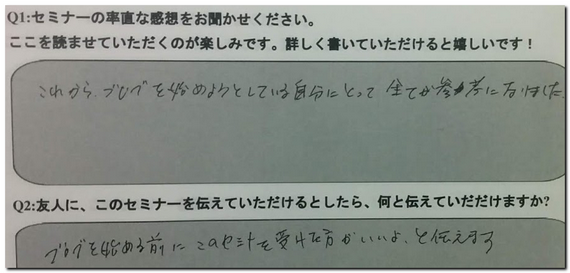 Q1:セミナーの率直な感想をお聞かせください。
ここを読ませていただくのが楽しみです。詳しく書いていただけると嬉しいです！
これから、ブログを始めようとしている自分にとって 全てが参考になりました
Q2:友人に、このセミナーを伝えていただけるとしたら、何と伝えていだだけますか?
ブログを始める前に このセミナを受けた方がいいよ、と伝えます